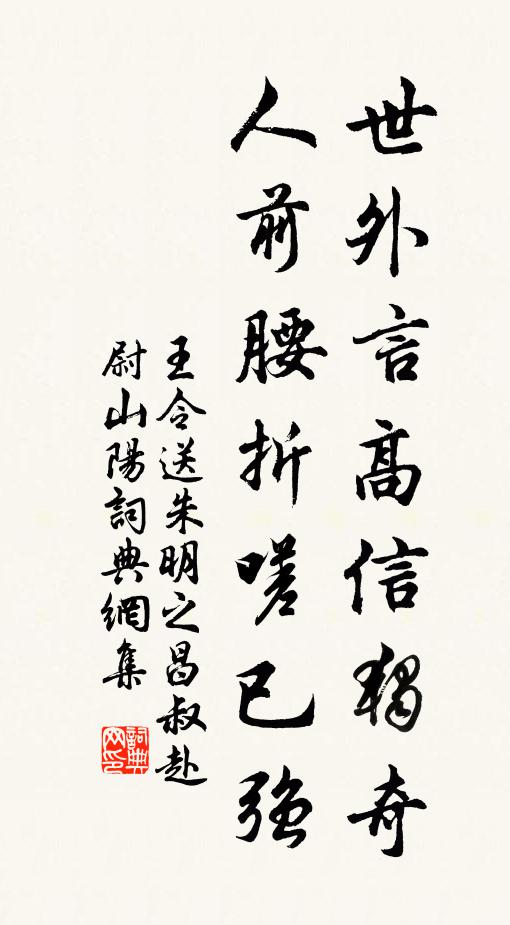 世外言高信獨奇
人前腰折嗟已強
王令送朱明之昌叔赴
尉山陽詞典網集
詞典网印